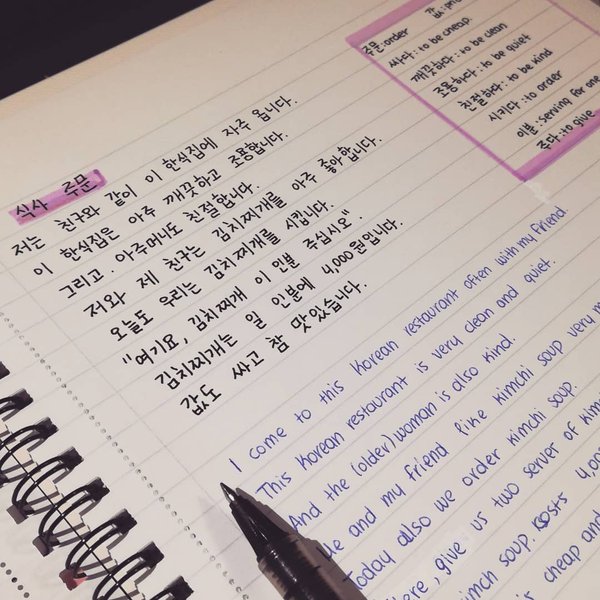 식사 주문
저는 친구와 같이 이 한식집에 자주 옵니다.
이 한식집은 아주 깨끗하고 조용합니다.
그리고 아주머니도 친절합니다.
저와 제 친구는 김치찌개를 아주 좋아합니다.
오늘도 우리는 김치찌개를 시킵니다.
"여기요, 김치찌개 이 인분 주십시오".
김치찌개는 일 인분에 4,000원입니다.
값도 싸고 참 맛있습니다.
주문:order
싸다:to be cheap.
깨끗하다:to be clean
조용하다:to be quiet
친절하다:to be kind
시키다:to order
이분:serving for one
주다:to give
I come to this Korean restaurant often with my friend.
This Korean restaurant is very clean and quiet.
And the (older) woman is also kind.
Me and my friend like kimchi soup very
Today also we order kimchi soup.
give us two server of
soup. costs 4,00
is cheap and